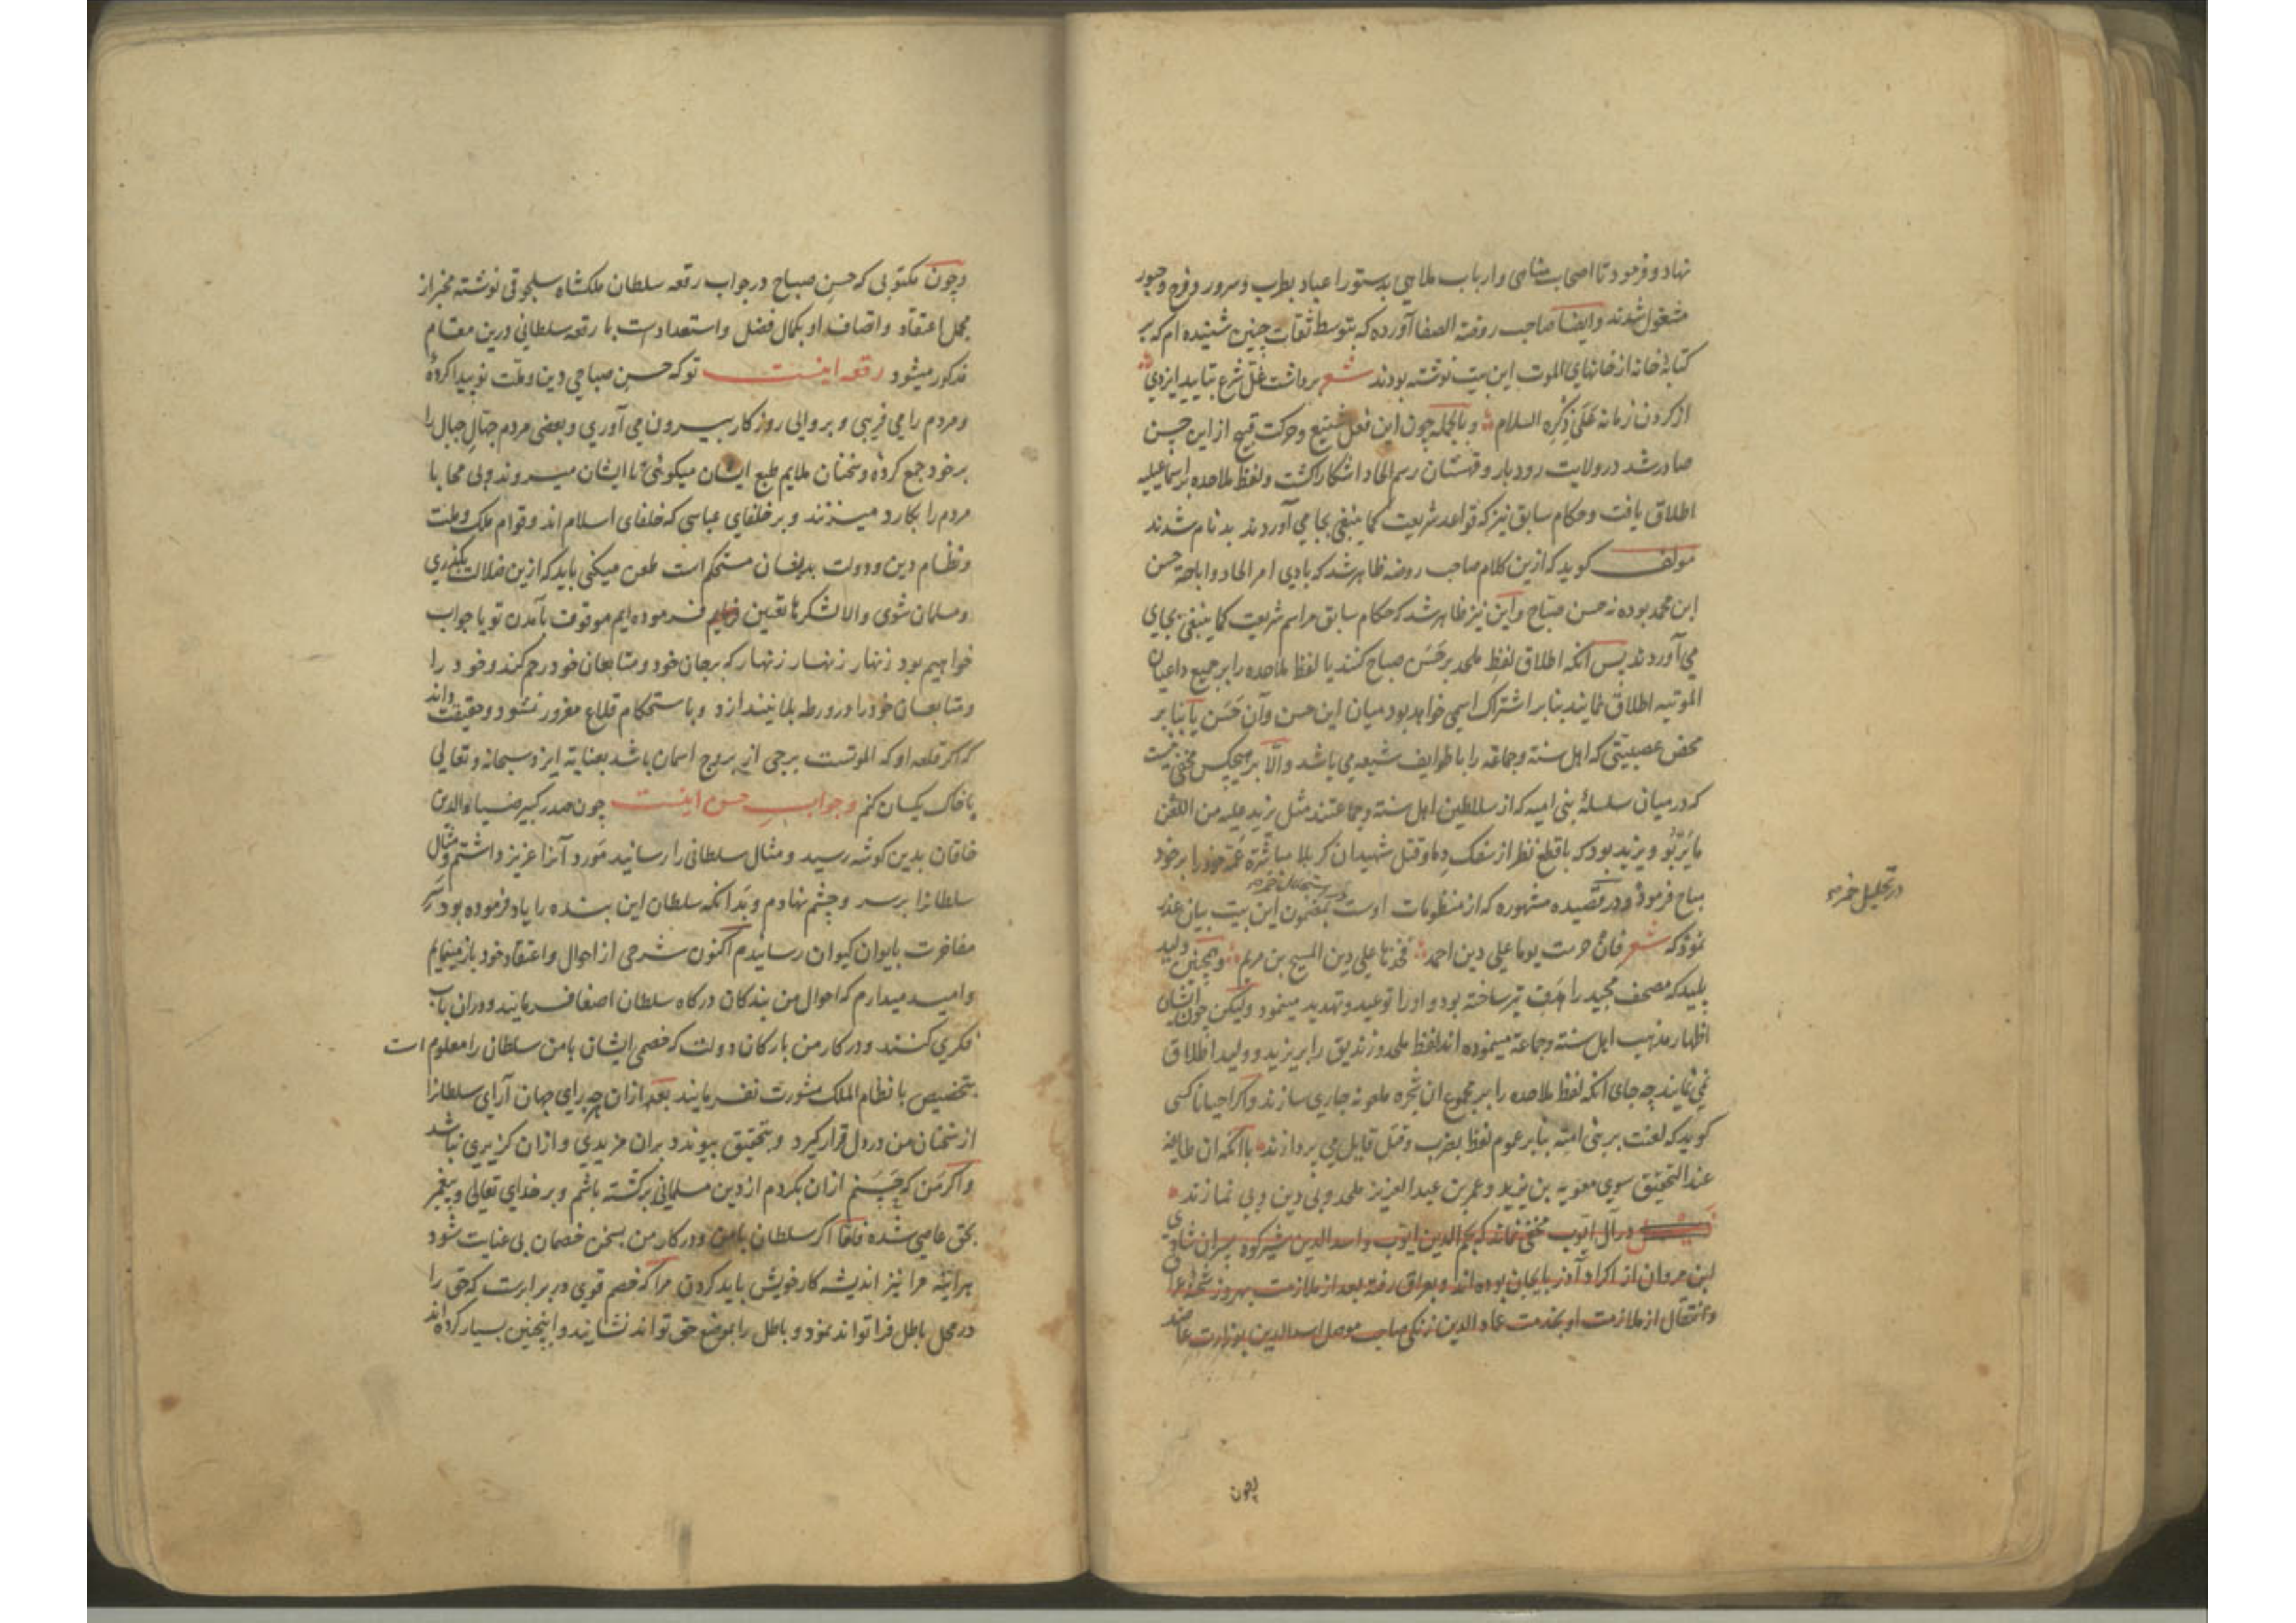 نهاد و فرمود تا اصحاب مناهی و ارباب ملاهی بدستور اعیاد بطرب و سرور و فرح و حبور
مشغول شدند وایضا صاحب روضة الصفا آورده که بتوسط ثقات چنین شنیده ام که بر
کتابهٔ خانه از خانهای الموت این بیت نوشته بودند شعر برداشت غل شرع بتایید ایزدی
از گردن زمانه علی ذکره السلام و بالجمله چون این فعل شنیع و حرکت قبیح از این حسن
صادر شد در ولایت رودبار و قهستان رسم الحاد اشکارا گشت و لفظ ملاحده بر اسماعیلیه
اطلاق یافت و حکام سابق نیز که قواعد شریعت کما ینبغی بجا می آوردند بدنام شدند
مولف گوید که ازین کلام صاحب روضه ظاهر شد که بادی امر الحاد و اباحة حسن
ابن محمد بوده نه حسن صباح و این نیز ظاهر شد که حکام سابق مراسم شریعت کما ینبغی بجای
می آوردند پس آنکه اطلاق لفظ ملحد بر حسن صباح کنند یا لفظ ملاحده را بر جمیع داعیان
الموتیه اطلاق نمایند بنا بر اشتراک اسمی خواهد بود میان این حسن و آن حسن یا بنا بر
محض عصبیتی که اهل سنة و جماعة را با طوایف شیعه می باشد والا بر هیچکس مخفی نیست
که در میان سلسلهٔ بنی امیه که از سلاطین اهل سنة و جماعتند مثل یزید علیه من اللعن
ما یربو و یزید بود که با قطع نظر از سفک دماء و قتل شهیدان کربلا مباشرة عمة خود را بر خود
مباح فرمود و در قصیده مشهوره که از منظومات اوست بمضمون این بیت بیان عذر
نمود که شعر فان حرمت یوما علی دین احمد فخذها علی دین المسیح بن مریم و همچنین ولید
پلید که مصحف مجید را هدف تیر ساخته بود و او را توعید و تهدید مینمود ولیکن چون ایشان
اظهار مذهب اهل سنة و جماعة مینموده اند لفظ ملحد و زندیق را بر یزید و ولید اطلاق
نمی نمایند چه جای انکه لفظ ملاحده را بر مجموع ان شجره ملعونه جاری سازند و اکر احیانا کسی
گوید که لعنت بر بنی امیه بنا بر عموم لفظ بضرب و قتل قایل می پردازند با آنکه ان طایفه
عند التحقیق سوی معویه بن یزید و عمر بن عبد العزیز ملحد و بی دین و بی نمازند
در آل ایوب مخفی نماند که نجم الدین ایوب و اسد الدین شیرکوه پسران شادی
ابن مروان از اکراد آذربایجان بوده اند و بعراق رفته بعد از ملازمت بهروز شحنه
و انتقال از ملازمت او بخدمت عماد الدین زنکی صاحب موصل اسد الدین بوزارت عاضد
در تحلیل خمر
چون
وچون مکتوبی که حسن صباح در جواب رقعه سلطان ملکشاه سلجوقی نوشته مخبر از
مجمل اعتقاد و اتصاف او بکمال فضل و استعداد است با رقعه سلطانی درین مقام
مذکور میشود رقعه اینست تو که حسن صباحی دین و ملت نو پیدا کردهٔ
و مردم را می فریبی و بر والی روزگار بیرون می آوری و بعضی مردم جهال جبال را
بر خود جمع کرده و سخنان ملایم طبع ایشان میکوئی تا ایشان میروند و بی محابا
مردم را بکارد میزنند و بر خلفای عباسی که خلفای اسلام اند و قوام ملک و ملت
و نظام دین و دولت بدیشان مستحکم است طعن میکنی باید که ازین ضلالت بگذری
و مسلمان شوی والا لشکرها تعیین فرموده ایم موقوف بآمدن تو یا جواب
خواهیم بود زنهار زنهار زنهار که بر جان خود و متابعان خود رحم کند و خود را
و متابعان خود را در ورطه بلا نیندازد و باستحکام قلاع مغرور نشود و حقیقت داند
که اکر قلعه او که الموتست برجی از بروج اسمان باشد بعنایة ایزد سبحانه و تعالی
با خاک یکسان کنم وجواب حسن اینست چون صدر کبیر ضیاء الدین
خاقان بدین گوشه رسید و مثال سلطانی را رسانید مورد آنرا عزیز داشتم و مثال
سلطانرا بر سر و چشم نهادم و بدانکه سلطان این بنده را یاد فرموده بود سر
مفاخرت بایوان کیوان رسانیدم اکنون شرحی از احوال و اعتقاد خود باز مینمایم
وامید میدارم که احوال من بندگان درگاه سلطان اصغا فرمایند و دران باب
فکری کنند و در کار من بارکان دولت که خصمی ایشان با من سلطان را معلوم است
بتخصیص با نظام الملک مشورت نفرمایند بعد ازان هر چه رای جهان آرای سلطانرا
از سخنان من در دل قرار گیرد و بتحقیق پیوندد بران مزیدی و ازان گزیری نباشد
و اکر من که حسنم ازان بگردم از دین مسلمانی برگشته باشم و بر خدای تعالی و پیغمبر
بحق عاصی شده فاما اکر سلطان با من و در کار من بسخن خصمان بی عنایت شود
هر آینه مرا نیز اندیشه کار خویش باید کردن مرا که خصم قوی در برابرست که حق را
در محل باطل فرا تواند نمود و باطل را بموضع حق تواند نشانید و اینچنین بسیار کرده اند